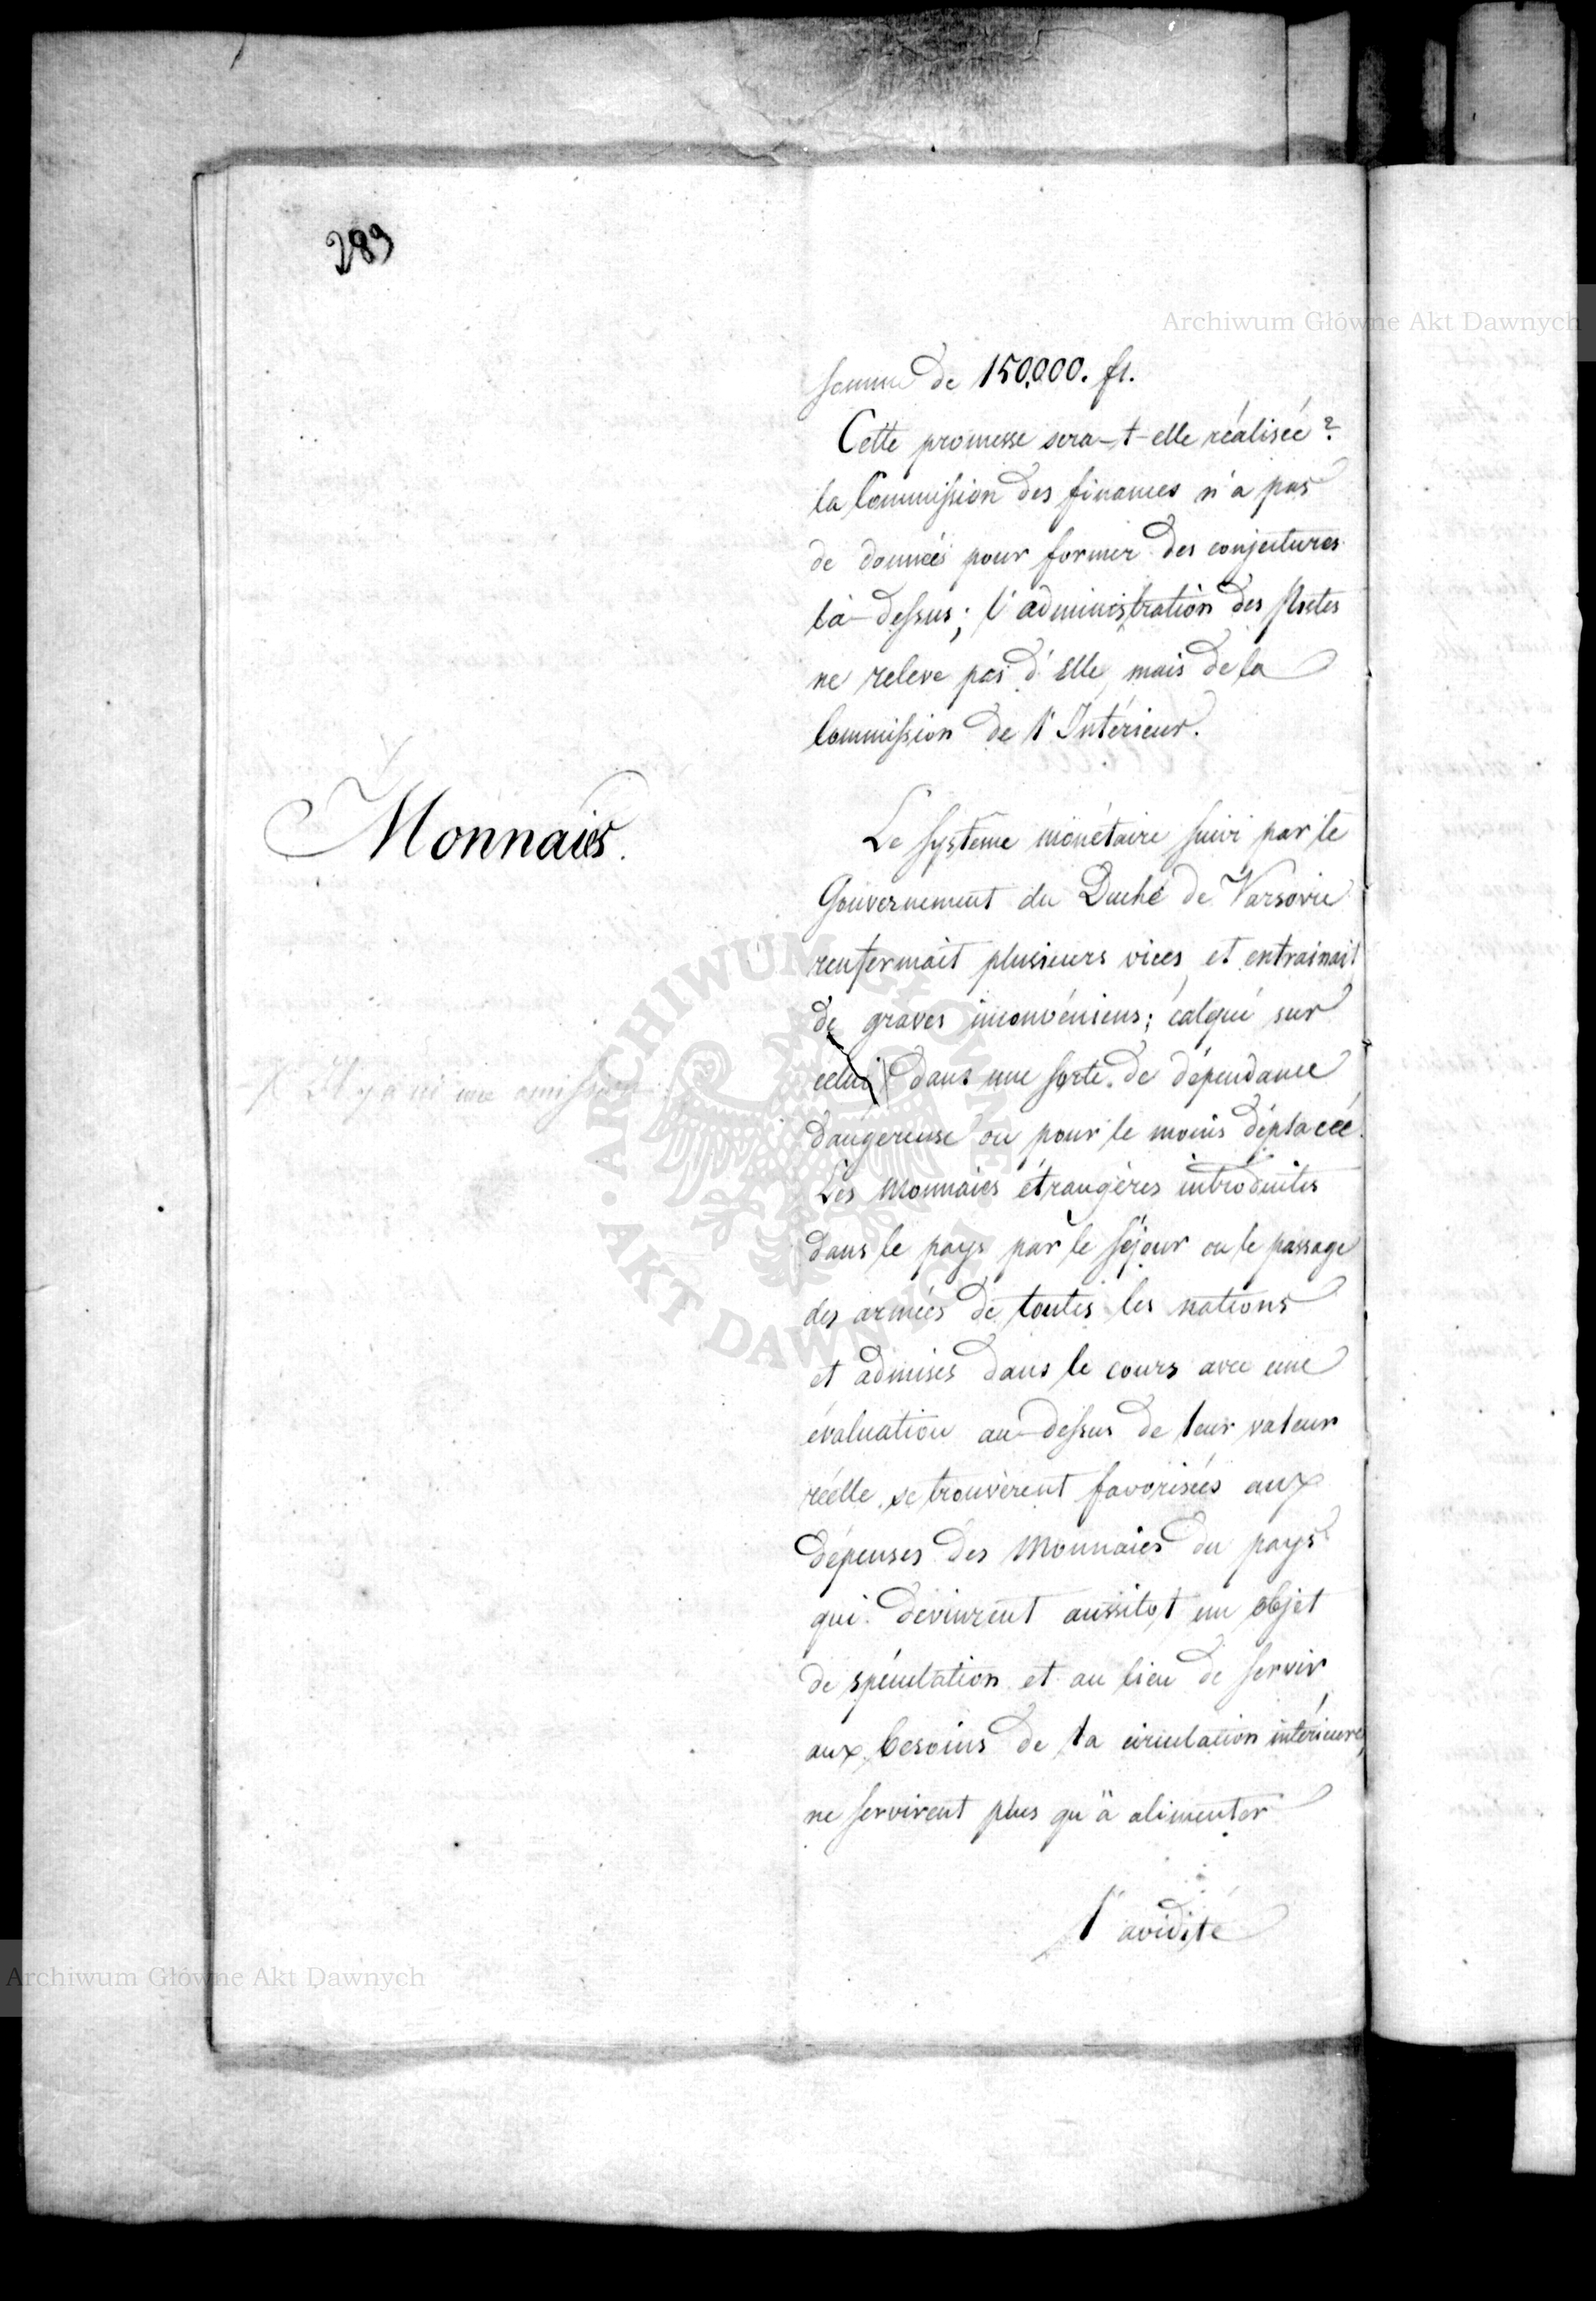 289
somme de 150,000. fl.
Cette promesse sera-t-elle réalisée?
la Commission des finances n'a pas
de données pour former des conjectures
là-dessus; l'administration des postes
ne releve pas d'Elle, mais de la
Commission de l'Intérieur.
Monnaies.
Le systeme monétaire suivi par le
Gouvernement du Duché de Varsovie
renfermait plusieurs vices, et entrainait
de graves inconvéniens; calqué sur
celui dans une sorte de dépendance
X Il y a ici une omission
dangereuse ou pour le moins déplacée.
Les Monnaies étrangères introduites
dans le pays par le séjour ou le passage
des armées de toutes les nations
et admises dans le cours avec une
évaluation au-dessus de leur valeur
réelle, se trouvèrent favorisées aux
dépenses des Monnaies du pays
qui devinrent aussitot un objet
de spéculation et au lieu de servir
aux besoins de la circulation intérieure,
ne servirent plus qu'à alimenter
l'avidité
Archiwum Główne Akt Dawnych
ARCHIWUM GŁÓWNE AKT DAWNYCH
Archiwum Główne Akt Dawnych